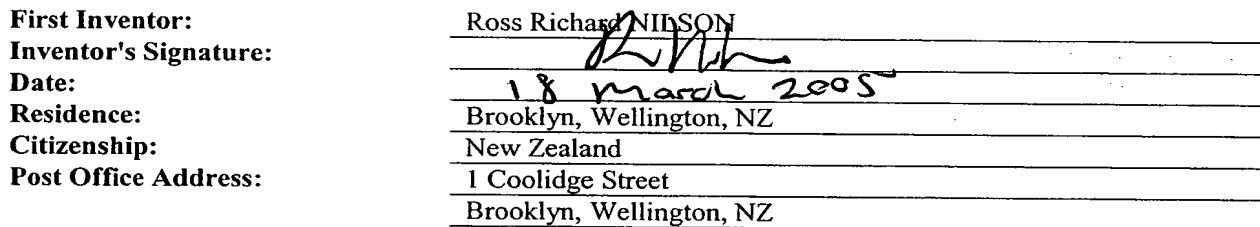 First Inventor: Ross Richard NILSON
Inventor's Signature:
Date: 18 March 2005
Residence: Brooklyn, Wellington, NZ
Citizenship: New Zealand
Post Office Address: 1 Coolidge Street
Brooklyn, Wellington, NZ